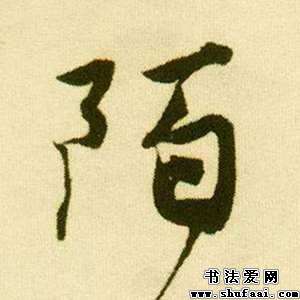 陌
书法爱网
www.shufaai.com